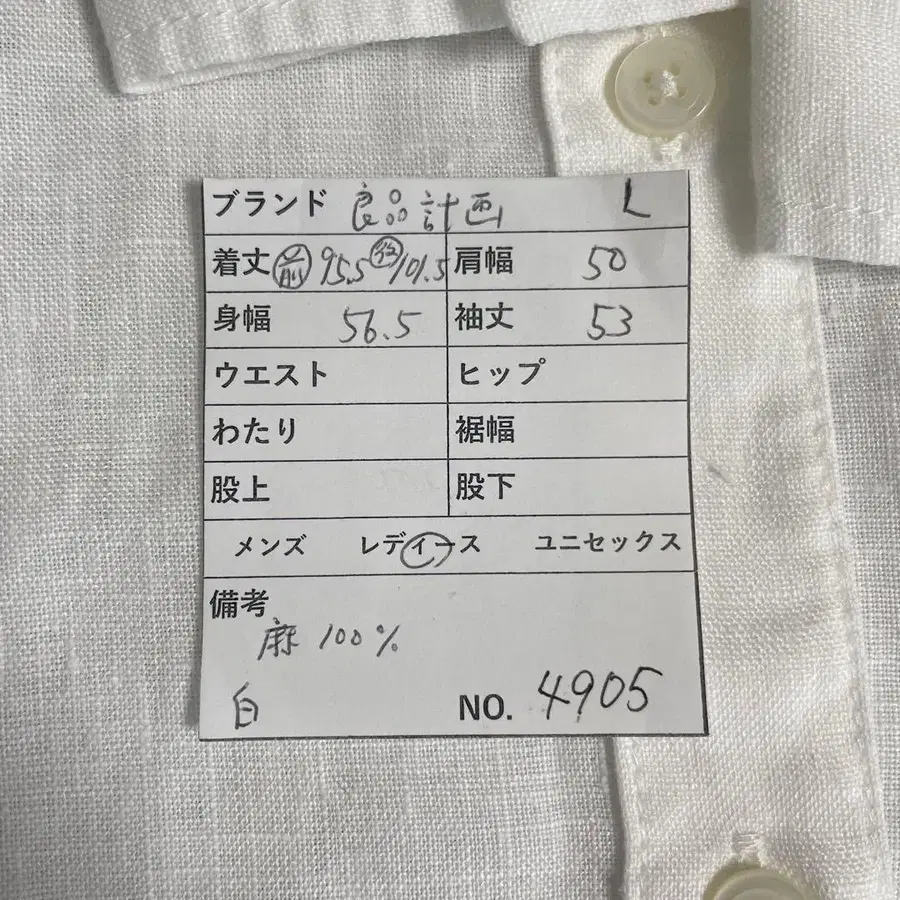 ブランド 良品計画 L
着丈 前 95.5 後 101.5 肩幅 50
身幅 56.5 袖丈 53
ウエスト ヒップ
わたり 裾幅
股上 股下
メンズ レディース ユニセックス
備考
麻 100%
白 NO. 4905